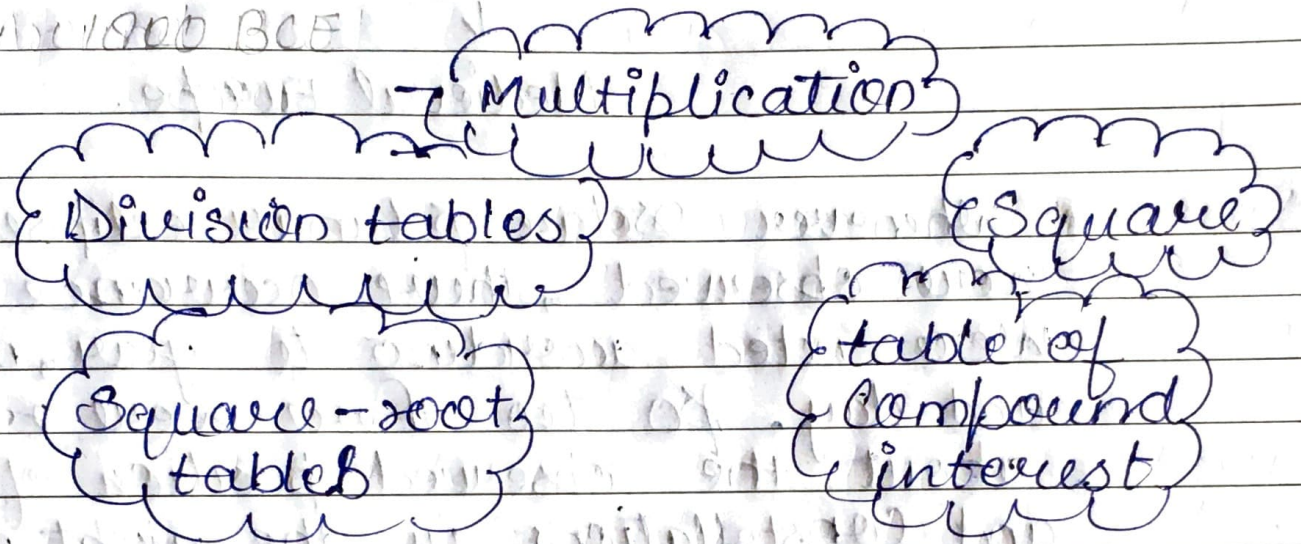 1800 BCE
Multiplication
Division tables
Square
Square-root
tables
table of
Compound
interest